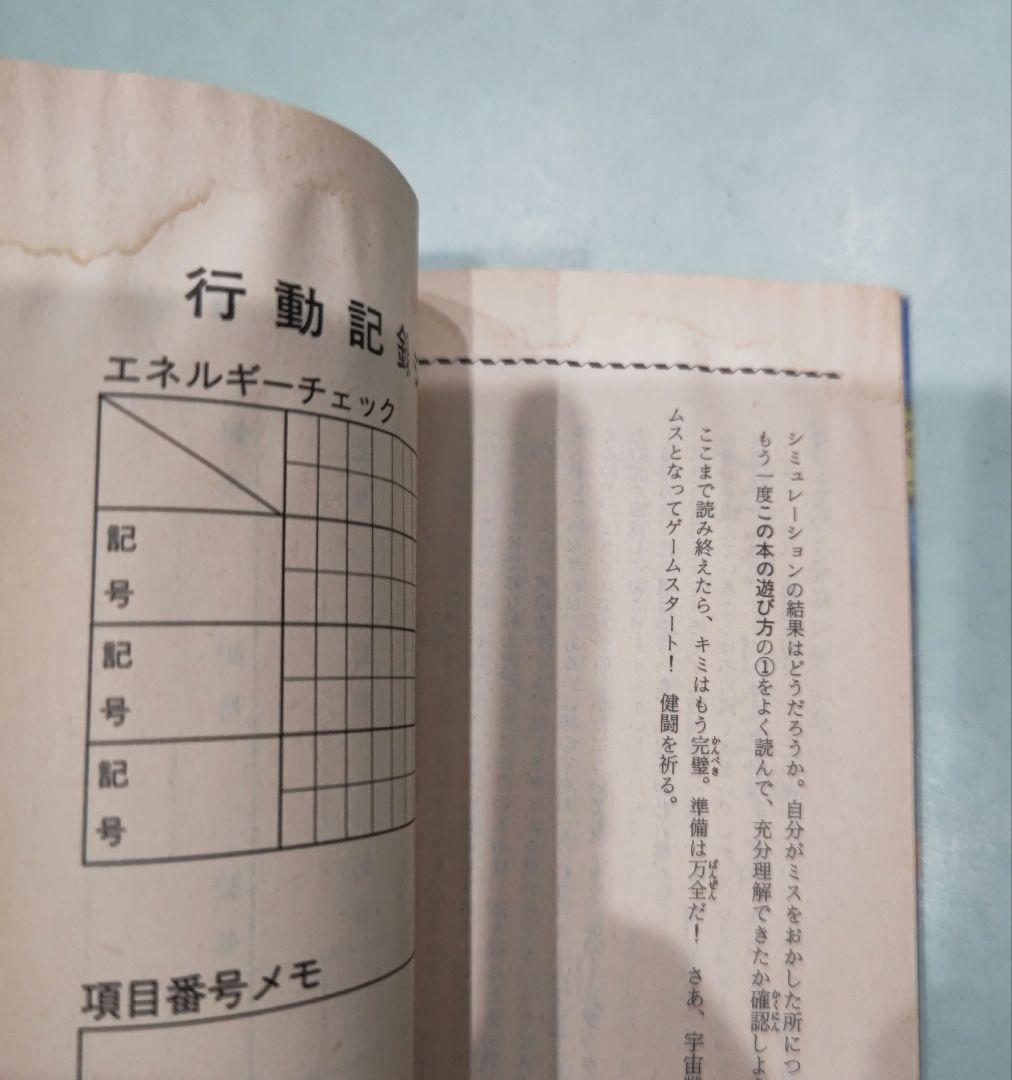 シミュレーションの結果はどうだろうか。自分がミスをおかした所につ
もう一度この本の遊び方の①をよく読んで、充分理解できたか確認しよ
ここまで読み終えたら、キミはもう完璧。準備は万全だ！　さあ、宇宙
ムスとなってゲームスタート！　健闘を祈る。
行動記録
エネルギーチェック
記号
記号
記号
項目番号メモ